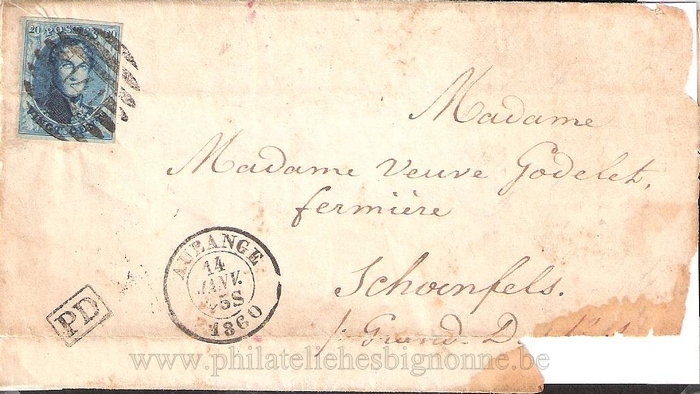 20 POSTES 20
VINGT CENT
Madame
Madame Veuve Godelet,
fermière
Schoenfels.
Grand-D
AUBANGE
14
JANV.
5S
1860
PD
www.philateliehesbignonne.be